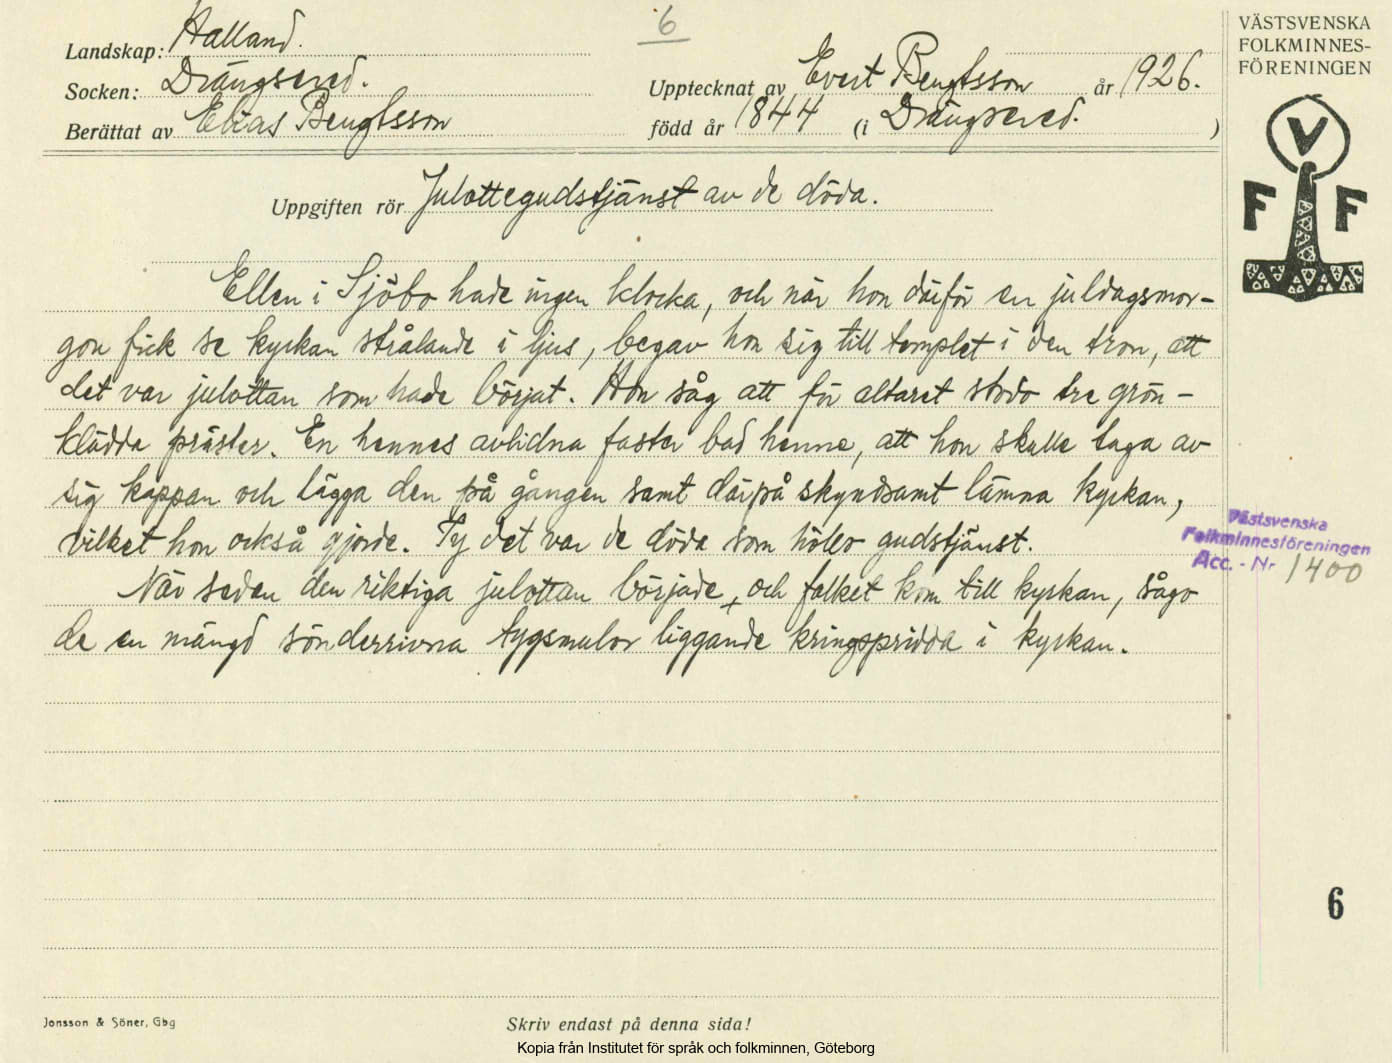 6
Landskap: Halland.
Socken: Drängsered.
Upptecknat av Evert Bengtsson år 1926.
Berättat av Elias Bengtsson född år 1844 (i Drängsered.)
Uppgiften rör Julottegudstjänst av de döda.
Ellen i Sjöbo hade ingen klocka, och när hon därför en juldagsmor-
gon fick se kyrkan strålande i ljus, begav hon sig till templet i den tron, att
det var julottan som hade börjat. Hon såg att för altaret stodo tre grön-
klädda präster. En hennes avlidna faster bad henne, att hon skulle taga av
sig kappan och lägga den på gången samt därpå skyndsamt lämna kyrkan,
vilket hon också gjorde. Ty det var de döda som höllo gudstjänst.
När sedan den riktiga julottan började, och folket kom till kyrkan, sågo
de en mängd sönderrivna tygsmulor liggande kringspridda i kyrkan.
VÄSTSVENSKA
FOLKMINNES-
FÖRENINGEN
V
F F
Västsvenska
Folkminnesföreningen
Acc. - Nr 1400
6
Jonsson & Söner, Gbg
Skriv endast på denna sida!
Kopia från Institutet för språk och folkminnen, Göteborg